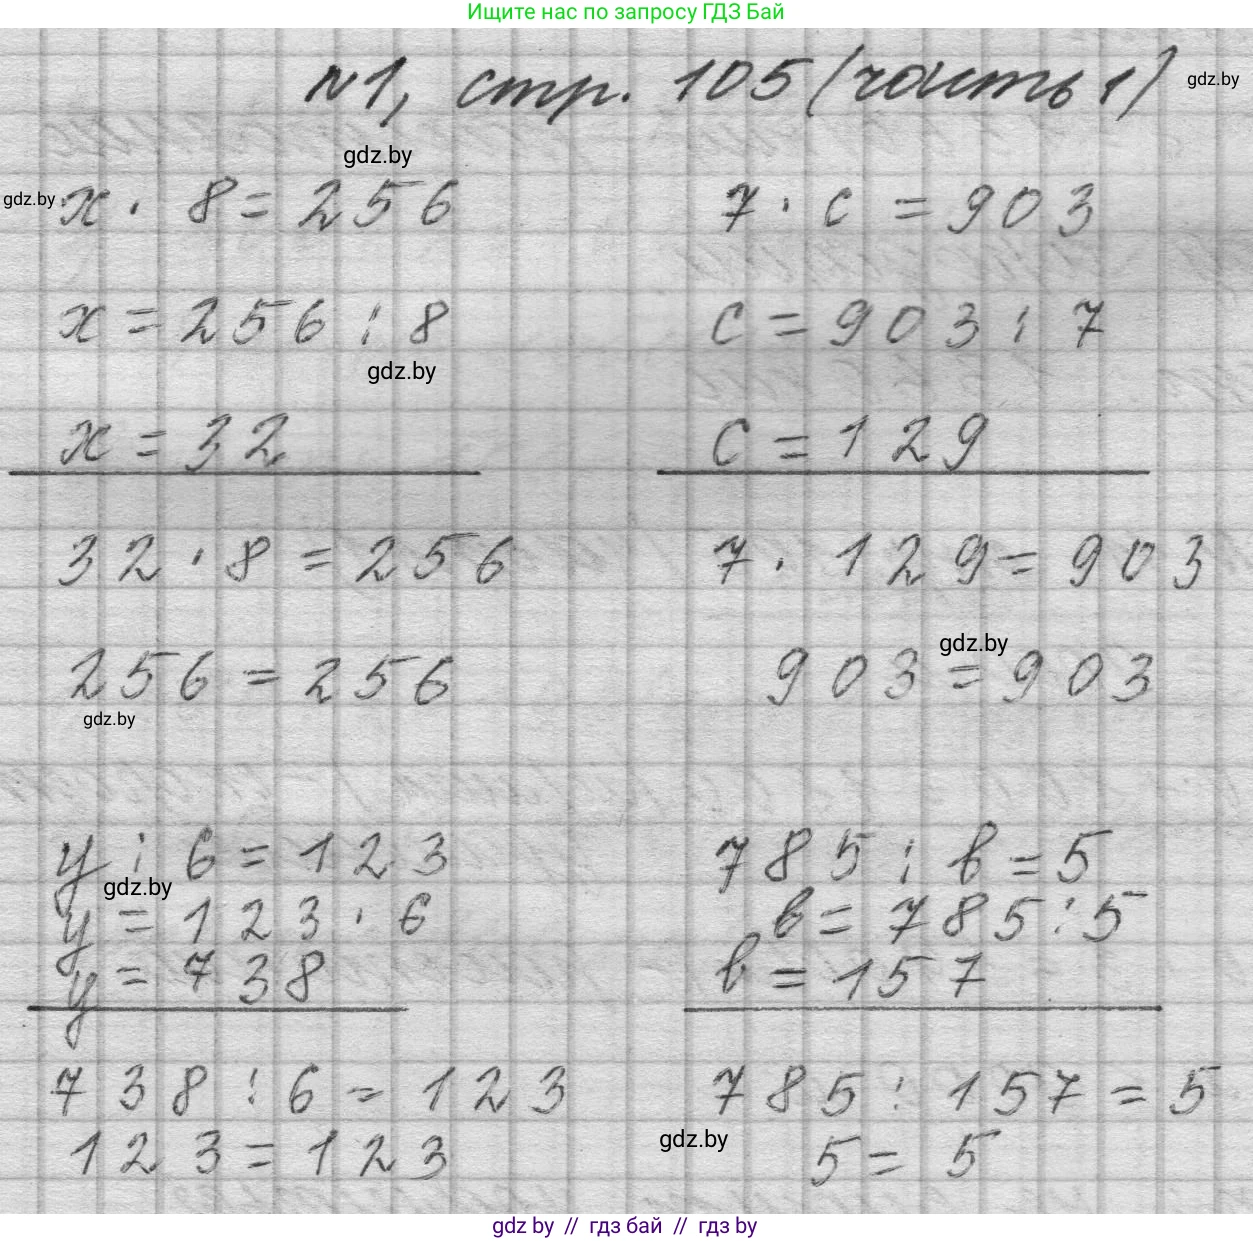 Ищите нас по запросу ГДЗ Бай
№1, стр. 105 (часть 1)
gdz.by
gdz.by
gdz.by
x · 8 = 256
7 · c = 903
x = 256 : 8
c = 903 : 7
gdz.by
x = 32
c = 129
32 · 8 = 256
7 · 129 = 903
gdz.by
256 = 256
903 = 903
gdz.by
y : 6 = 123
785 : b = 5
gdz.by
y = 123 · 6
b = 785 : 5
y = 738
b = 157
738 : 6 = 123
785 : 157 = 5
gdz.by
123 = 123
5 = 5
gdz by // гдз бай // гдз by